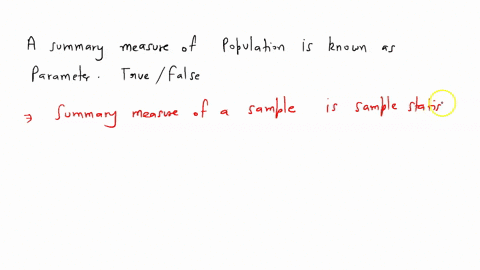 A summary measure of Population is known as
Parameter. True / False
⇒ Summary measure of a sample is sample statis